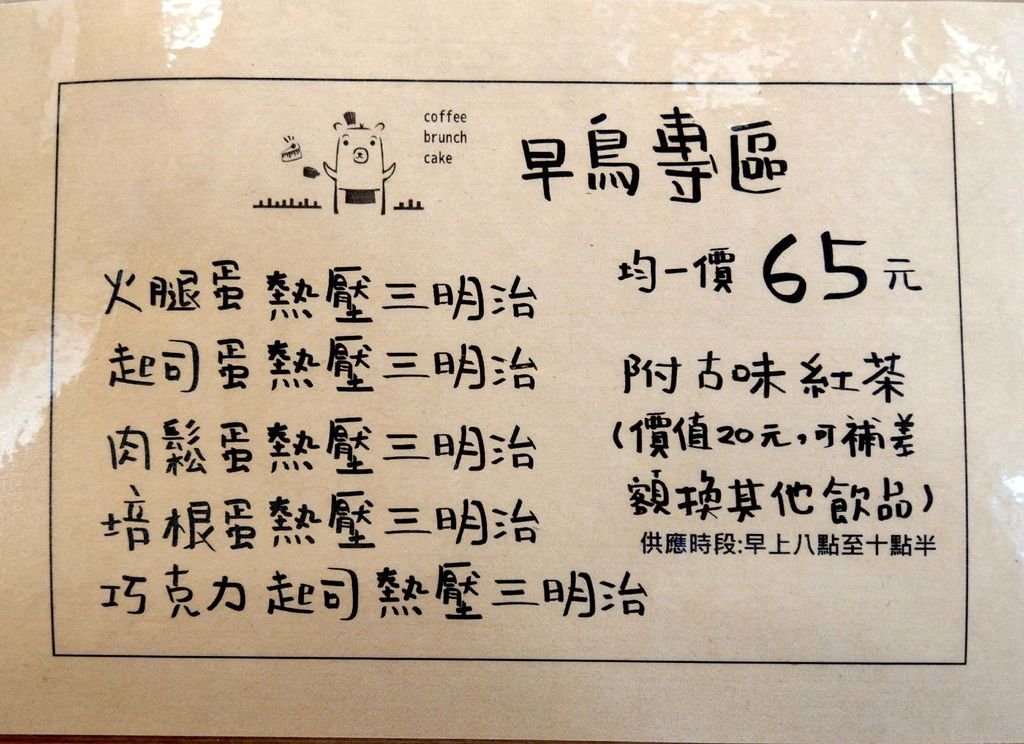 coffee
brunch
cake
早鳥專區
火腿蛋熱壓三明治
起司蛋熱壓三明治
肉鬆蛋熱壓三明治
培根蛋熱壓三明治
巧克力起司熱壓三明治
均一價 65元
附古味紅茶
(價值20元,可補差
額換其他飲品)
供應時段:早上八點至十點半